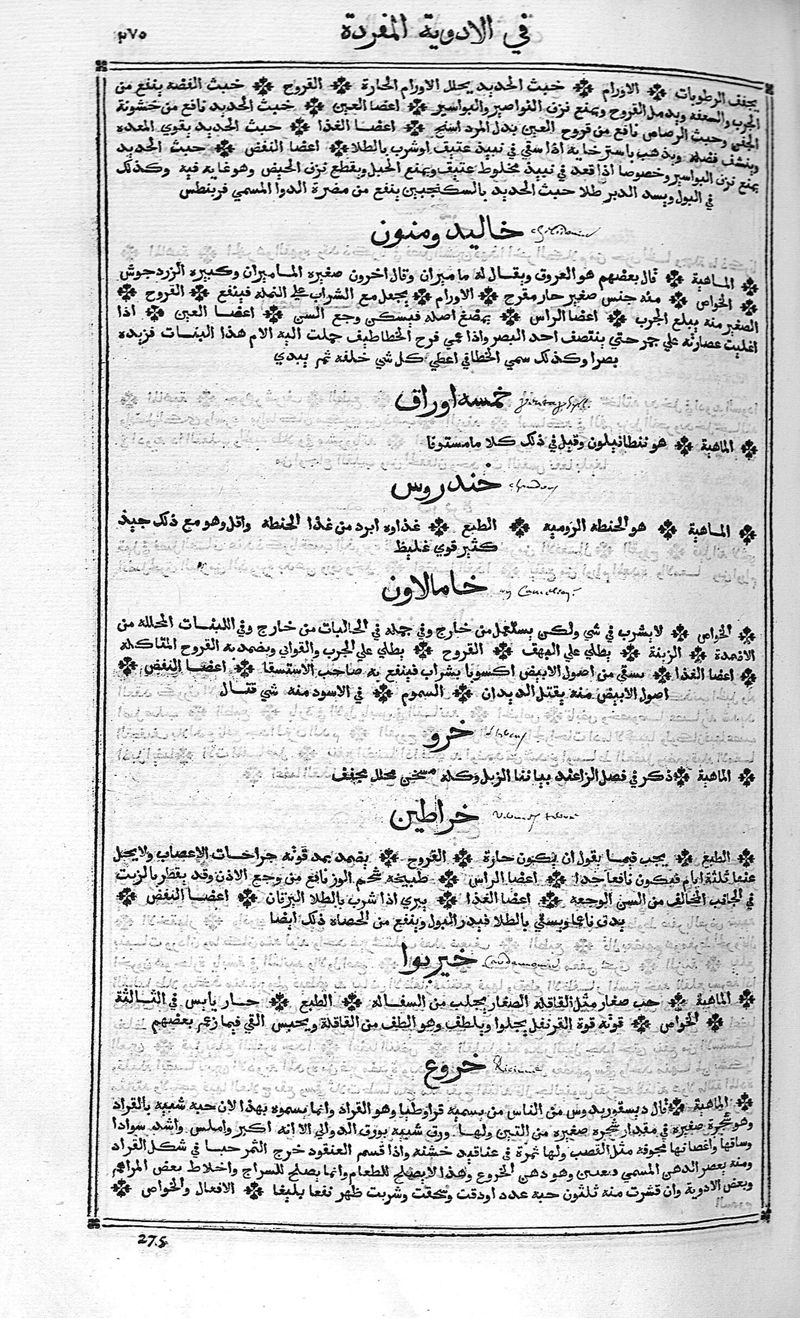 في الادوية المفردة ٢٧٥
يجفف الرطوبات ✤ الاورام ✤ خبث الحديد يحلل الاورام الحارة ✤ القروح ✤ خبث الفضه ينفع من
الجرب والسعفه ويدمل القروح ويمنع نزف النواصير والبواسير ✤ اعضا العين ✤ خبث الحديد نافع من خشونة
الجفن وخبث الرصاص نافع من قروح العين بدل المرداسنج ✤ اعضا الغذا ✤ خبث الحديد يقوي المعده
وينشف فضله ويذهب باسترخايه اذا سقي في نبيذ عتيق اوشرب بالطلا ✤ اعضا النفض ✤ خبث الحديد
يمنع نزف البواسير وخصوصا اذا قعد في نبيذ مخلوط عتيق ويمنع الحبل ويقطع نزف الحيض وهو غايه فيه وكذلك
في البول ويسد الدبر طلا خبث الحديد بالسكنجبين ينفع من مضرة الدوا المسمي فرينطس
خاليدومنون
✤ الماهية ✤ قال بعضهم هو العروق ويقال له ماميران وقال اخرون صغيره الماميران وكبيره الزردجوش
✤ الخواص ✤ منه جنس صغير حار مقرح ✤ الاورام ✤ يجعل مع الشراب علي النمله فينفع ✤ القروح ✤
الصغير منه يقلع الجرب ✤ اعضا الراس ✤ يمضغ اصله فيسكن وجع السن ✤ اعضا العين ✤ اذا
اغليت عصارته علي جمر حتي ينتصف احد البصر واذا عمي فرخ الخطاطيف حملت اليه الام هذا النبات فزيده
بصرا وكذلك سمي الخطافي اعطي كل شي خلقه ثم يهدي
خمسه اوراق
✤ الماهية ✤ هو نبطافيلون وقيل في ذلك كلا مامستوفا
خندروس
✤ الماهية ✤ هو الحنطه الروميه ✤ الطبع ✤ غذاوه ابرد من غذا الحنطه واقل وهو مع ذلك جيد
كثير قوي غليظ
خامالاون
✤ الخواص ✤ لايشرب في شي ولكن يستعمل من خارج وفي جمله في الجاليات من خارج وفي اللينات المحلله من
الاضمدة ✤ الزينة ✤ يطلي علي البهق ✤ القروح ✤ يطلي علي الجرب والقوابي ويضمد به القروح المتاكله
✤ اعضا الغذا ✤ يسقي من اصول الابيض اكسوبا بشراب فينفع به صاحب الاستسقا ✤ اعضا النفض ✤
اصول الابيض منه يقتل الديدان ✤ السموم ✤ في الاسود منه شي قتال
خرو
✤ الماهية ✤ ذكر في فصل الزا عند بياننا الزبل وكله مسخن محلل مجفف
خراطين
✤ الطبع ✤ يجب فيما يقول ان يكون حارة ✤ القروح ✤ يضمد بمد قوقه جراحات الاعصاب ولا يحل
عنها ثلثة ايام فيكون نافعا جدا ✤ اعضا الراس ✤ طبيخه بشحم الوز نافع من وجع الاذن وقد يقطر بالزيت
في الجانب المخالف من السن الوجعه ✤ اعضا الغذا ✤ يبري اذا شرب بالطلا اليرقان ✤ اعضا النفض ✤
يدق ناعما ويسقي بالطلا فيدر البول وينفع من الحصاه ذلك ايضا
خيربوا
✤ الماهية ✤ حب صغار مثل القاقله الصغار يجلب من السفاله ✤ الطبع ✤ حار يابس في الثالثة
✤ الخواص ✤ قوته قوة القرنفل يجلوا ويلطف وهو الطف من القاقلة ويحبس القي فيما زعم بعضهم
خروع Ricinus
✤ الماهية ✤ قال ديسقوريدوس من الناس من يسميه قراوطيا وهو القراد وانما يسموه بهذا لان حبه شبيه بالقراد
وهو شجرة صغيره في مقدار شجره صغيره من التين ولها ورق شبيه بورق الدوالي الا انه اكبر واملس واشد سوادا
وساقها واغصانها مجوفه مثل القصب ولها ثمرة في عناقيد خشنه واذا قسم العنقود خرج الثمر حبا في شكل القراد
ومنه يعصر الدهن المسمي وهو دهن الخروع وهذا لايصلح للطعام وانما يصلح للسراج واخلاط بعض المراهم
وبعض الادوية وان قشرت منه ثلثون حبه عدد اودقت وسحقت وشربت ظهر نفعا بليغا ✤ الافعال والخواص ✤
275